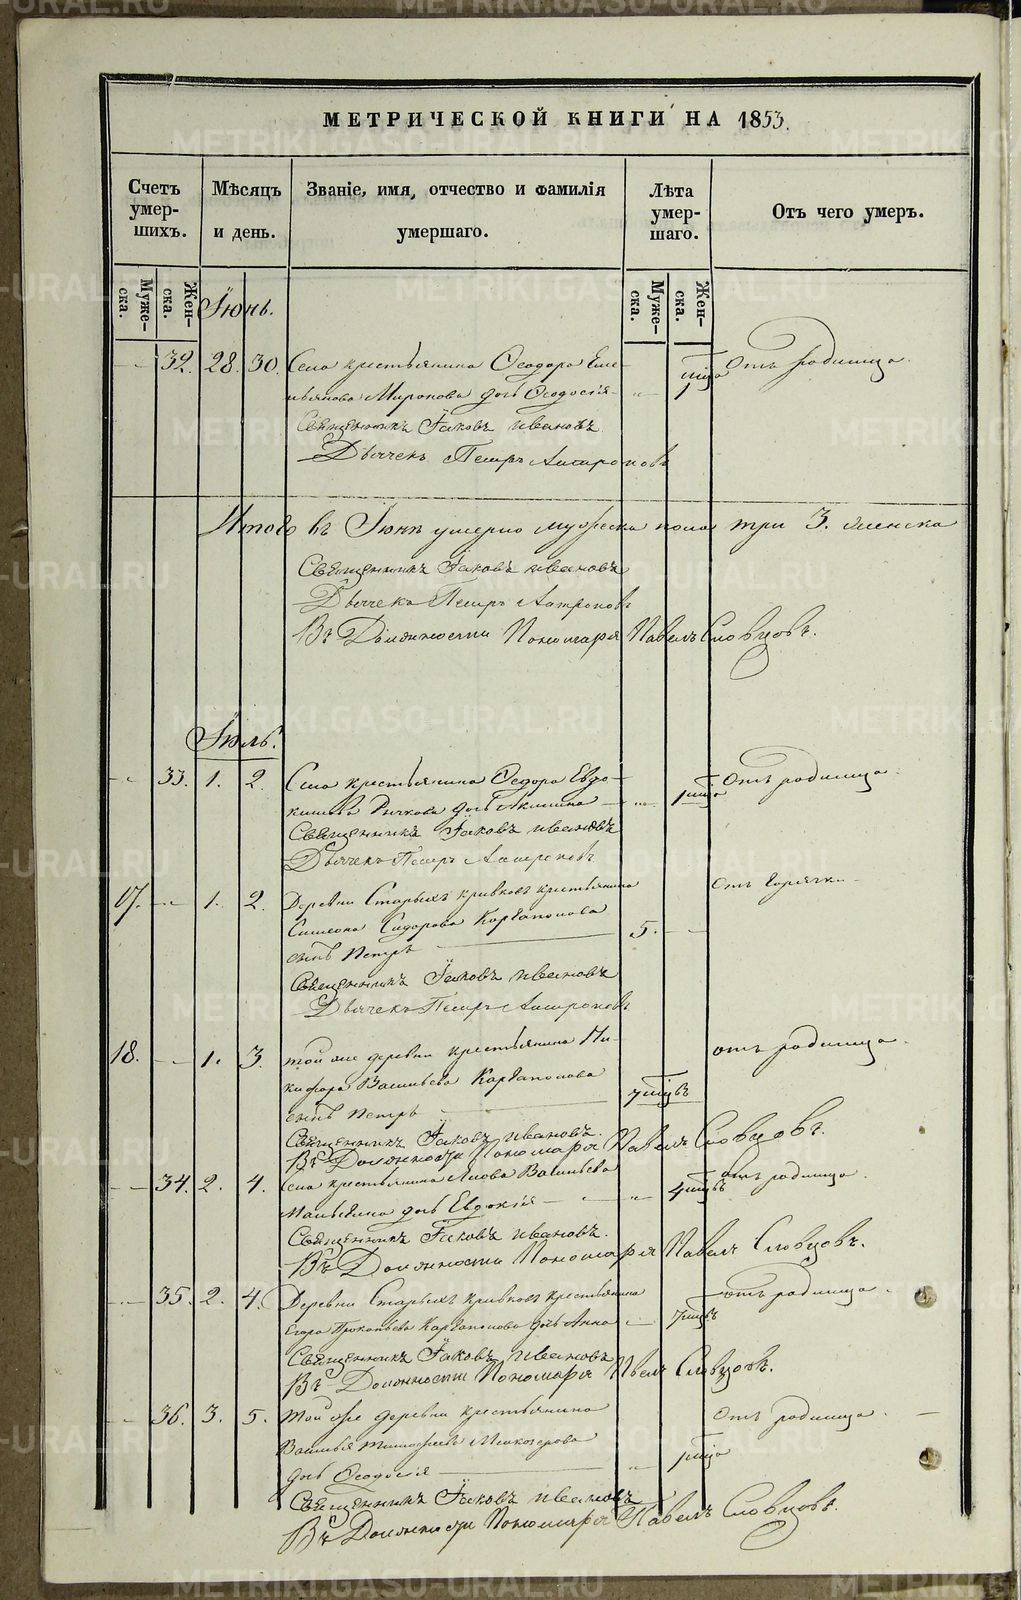 МЕТРИЧЕСКОЙ КНИГИ НА 1853.
Счетъ умер-шихъ. Мѣсяцъ и день. Званіе, имя, отчество и фамилія умершаго. Лѣта умер-шаго. Отъ чего умеръ.
Муже-ска. Жен-ска. Муже-ска. Жен-ска.
Іюнь.
32. 28. 30. Села крестьянина Ѳеодора Еме- Отъ родимца.
льянова Миронова дочь Ѳеодосія 1
Священникъ Іаковъ Ивановъ
Дьячекъ Петръ Антроповъ
Итого въ Іюнѣ умерло мужеска пола три 3. женска
Священникъ Іаковъ Ивановъ
Дьячекъ Петръ Антроповъ
Въ Должности Пономаря Павелъ Словцовъ.
Іюль.
33. 1. 2. Села крестьянина Ѳедора Евдо- Отъ родимца.
кимова дочь Акилина 1
Священникъ Іаковъ Ивановъ
Дьячекъ Петръ Антроповъ
17. 1. 2. Деревни Старыхъ Кривковъ крестьянина Отъ горячки
Симеона Сидорова Каргаполова 5.
сынъ Петръ
Священникъ Іаковъ Ивановъ
Дьячекъ Петръ Антроповъ
18. 1. 3. той же деревни крестьянина Ни- отъ родимца.
кифора Васильева Каргаполова 7
сынъ Петръ
Священникъ Іаковъ Ивановъ.
Въ Должности Пономаря Павелъ Словцовъ.
34. 2. 4. Села крестьянина Васильева отъ родимца.
дочь Евдокія 4
Священникъ Іаковъ Ивановъ.
Въ Должности Пономаря Павелъ Словцовъ.
35. 2. 4. Деревни Старыхъ Кривковъ крестьянина отъ родимца.
Егора Прокопьева Каргаполова дочь Анна 7
Священникъ Іаковъ Ивановъ
Въ Должности Пономаря Павелъ Словцовъ.
36. 3. 5. Той же деревни крестьянина Отъ родимца.
Василья Тимофеева 1
дочь Ѳеодосія
Священникъ Іаковъ Ивановъ
Въ Должности Пономаря Павелъ Словцовъ.
METRIKI.GASO-URAL.RU